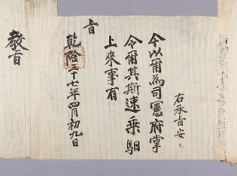 右承旨安
今以爾爲司憲府掌
令爾其斯速乘馹
上來事有
旨
乾隆三十七年四月初九日
敎旨